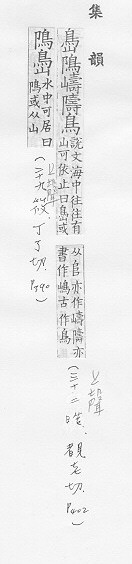 集韻
島隝嶹隯鳥說文海中往往有山可依止曰島或
从𨸏亦作嶹隯亦書作嶋古作鳥
上聲
(三十二晧.覩老切.P402)
隝島水中可居曰隝或从山
上聲
(二十九筱.丁了切.P390)